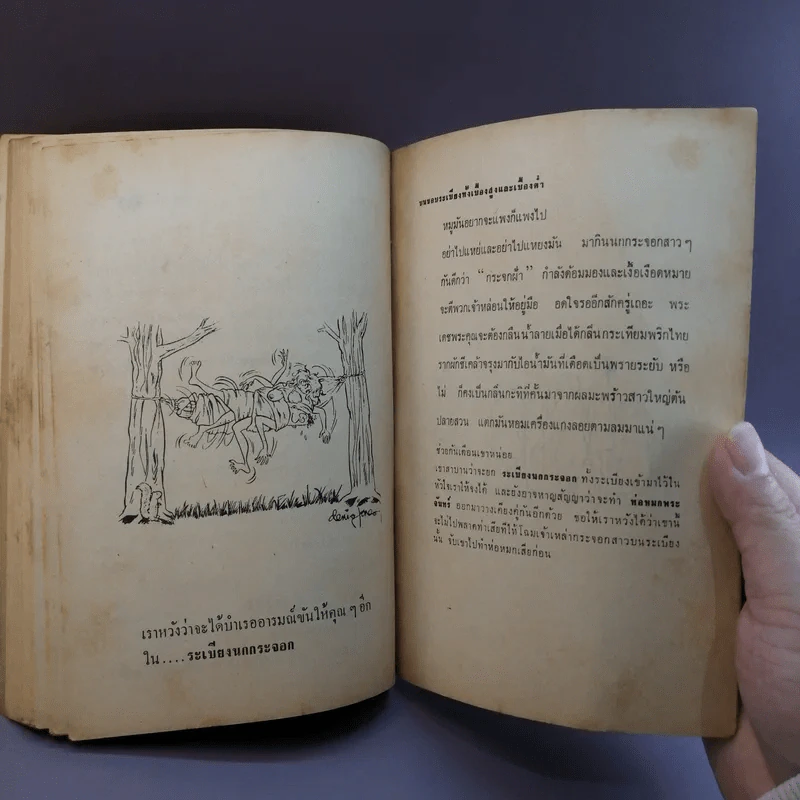 เราหวังว่าจะได้บำเรออารมณ์ขันให้คุณ ๆ อีก
ใน....ระเบียงนกกระจอก
บนขอบระเบียงทั้งเบื้องสูงและเบื้องต่ำ
หมูมันอยากจะแพงก็แพงไป
อย่าไปแหย่และอย่าไปแหยงมัน มากินนกกระจอกสาว ๆ
กันดีกว่า “กระจกฝ้า” กำลังด้อมมองและเงื้อเงือดหมาย
จะตีพวกเจ้าหล่อนให้อยู่มือ อดใจรออีกสักครู่เถอะ พระ
เดชพระคุณจะต้องกลืนน้ำลายเมื่อได้กลิ่นกระเทียมพริกไทย
รากผักชีเคล้าจรุงมากับไอน้ำมันที่เดือดเป็นพรายระยับ หรือ
ไม่ ก็คงเป็นกลิ่นกะทิที่คั้นมาจากผลมะพร้าวสาวใหญ่ต้น
ปลายสวน แตกมันหอมเครื่องแกงลอยตามลมมาแน่ ๆ
ช่วยกันเตือนเขาหน่อย
เขาสาบานว่าจะยก ระเบียงนกกระจอก ทั้งระเบียงเข้ามาไว้ใน
หัวใจเราให้จงได้ และยังอาจหาญสัญญาว่าจะทำ ห่อหมกพระ
จันทร์ ออกมาวางเคียงคู่กันอีกด้วย ขอให้เราหวังได้ว่าเขานี้
จะไม่ไปพลาดท่าเสียทีให้โฉมเจ้าเหล่ากระจอกสาวบนระเบียง
นั้น จับเขาไปทำห่อหมกเสียก่อน